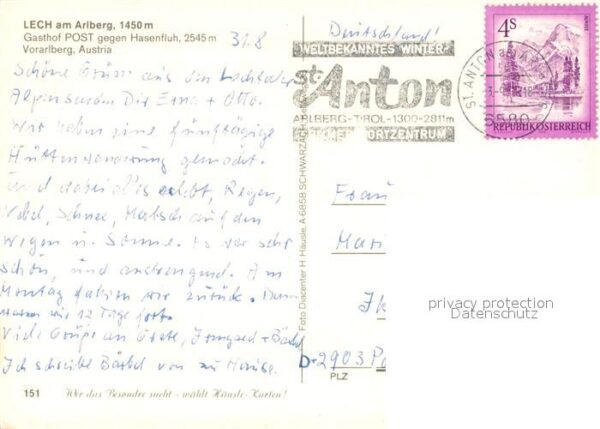 LECH am Arlberg, 1450 m
Gasthof POST gegen Hasenfluh, 2545 m
Vorarlberg, Austria
31.8
Schöne Grüße aus den Lechtaler
Alpen senden Dir Erna + Otto.
Wir haben eine fünftägige
Hüttenwanderung gemacht.
Und dabei alles erlebt, Regen,
Nebel, Schnee, Matsch auf den
Wegen u. Sonne. Es war sehr
schön, und anstrengend. Am
Montag fahren wir zurück. Dann
waren wir 12 Tage fort.
Viele Grüße an Grete, Irmgard + Bärbel
Ich schreibe Bärbel von zu Hause.
151
Wer das Besondre sucht - wählt Häusle-Karten!
Foto Diacenter H. Häusle, A-6858 SCHWARZACH
Deutschland!
WELTBEKANNTES WINTER-
St. Anton
ARLBERG-TIROL-1300-2811m
SPORTZENTRUM
ST. ANTON AM ARLBERG
6580
4 S
REPUBLIK ÖSTERREICH
Frau
Mari
D-2903
PLZ
privacy protection
Datenschutz